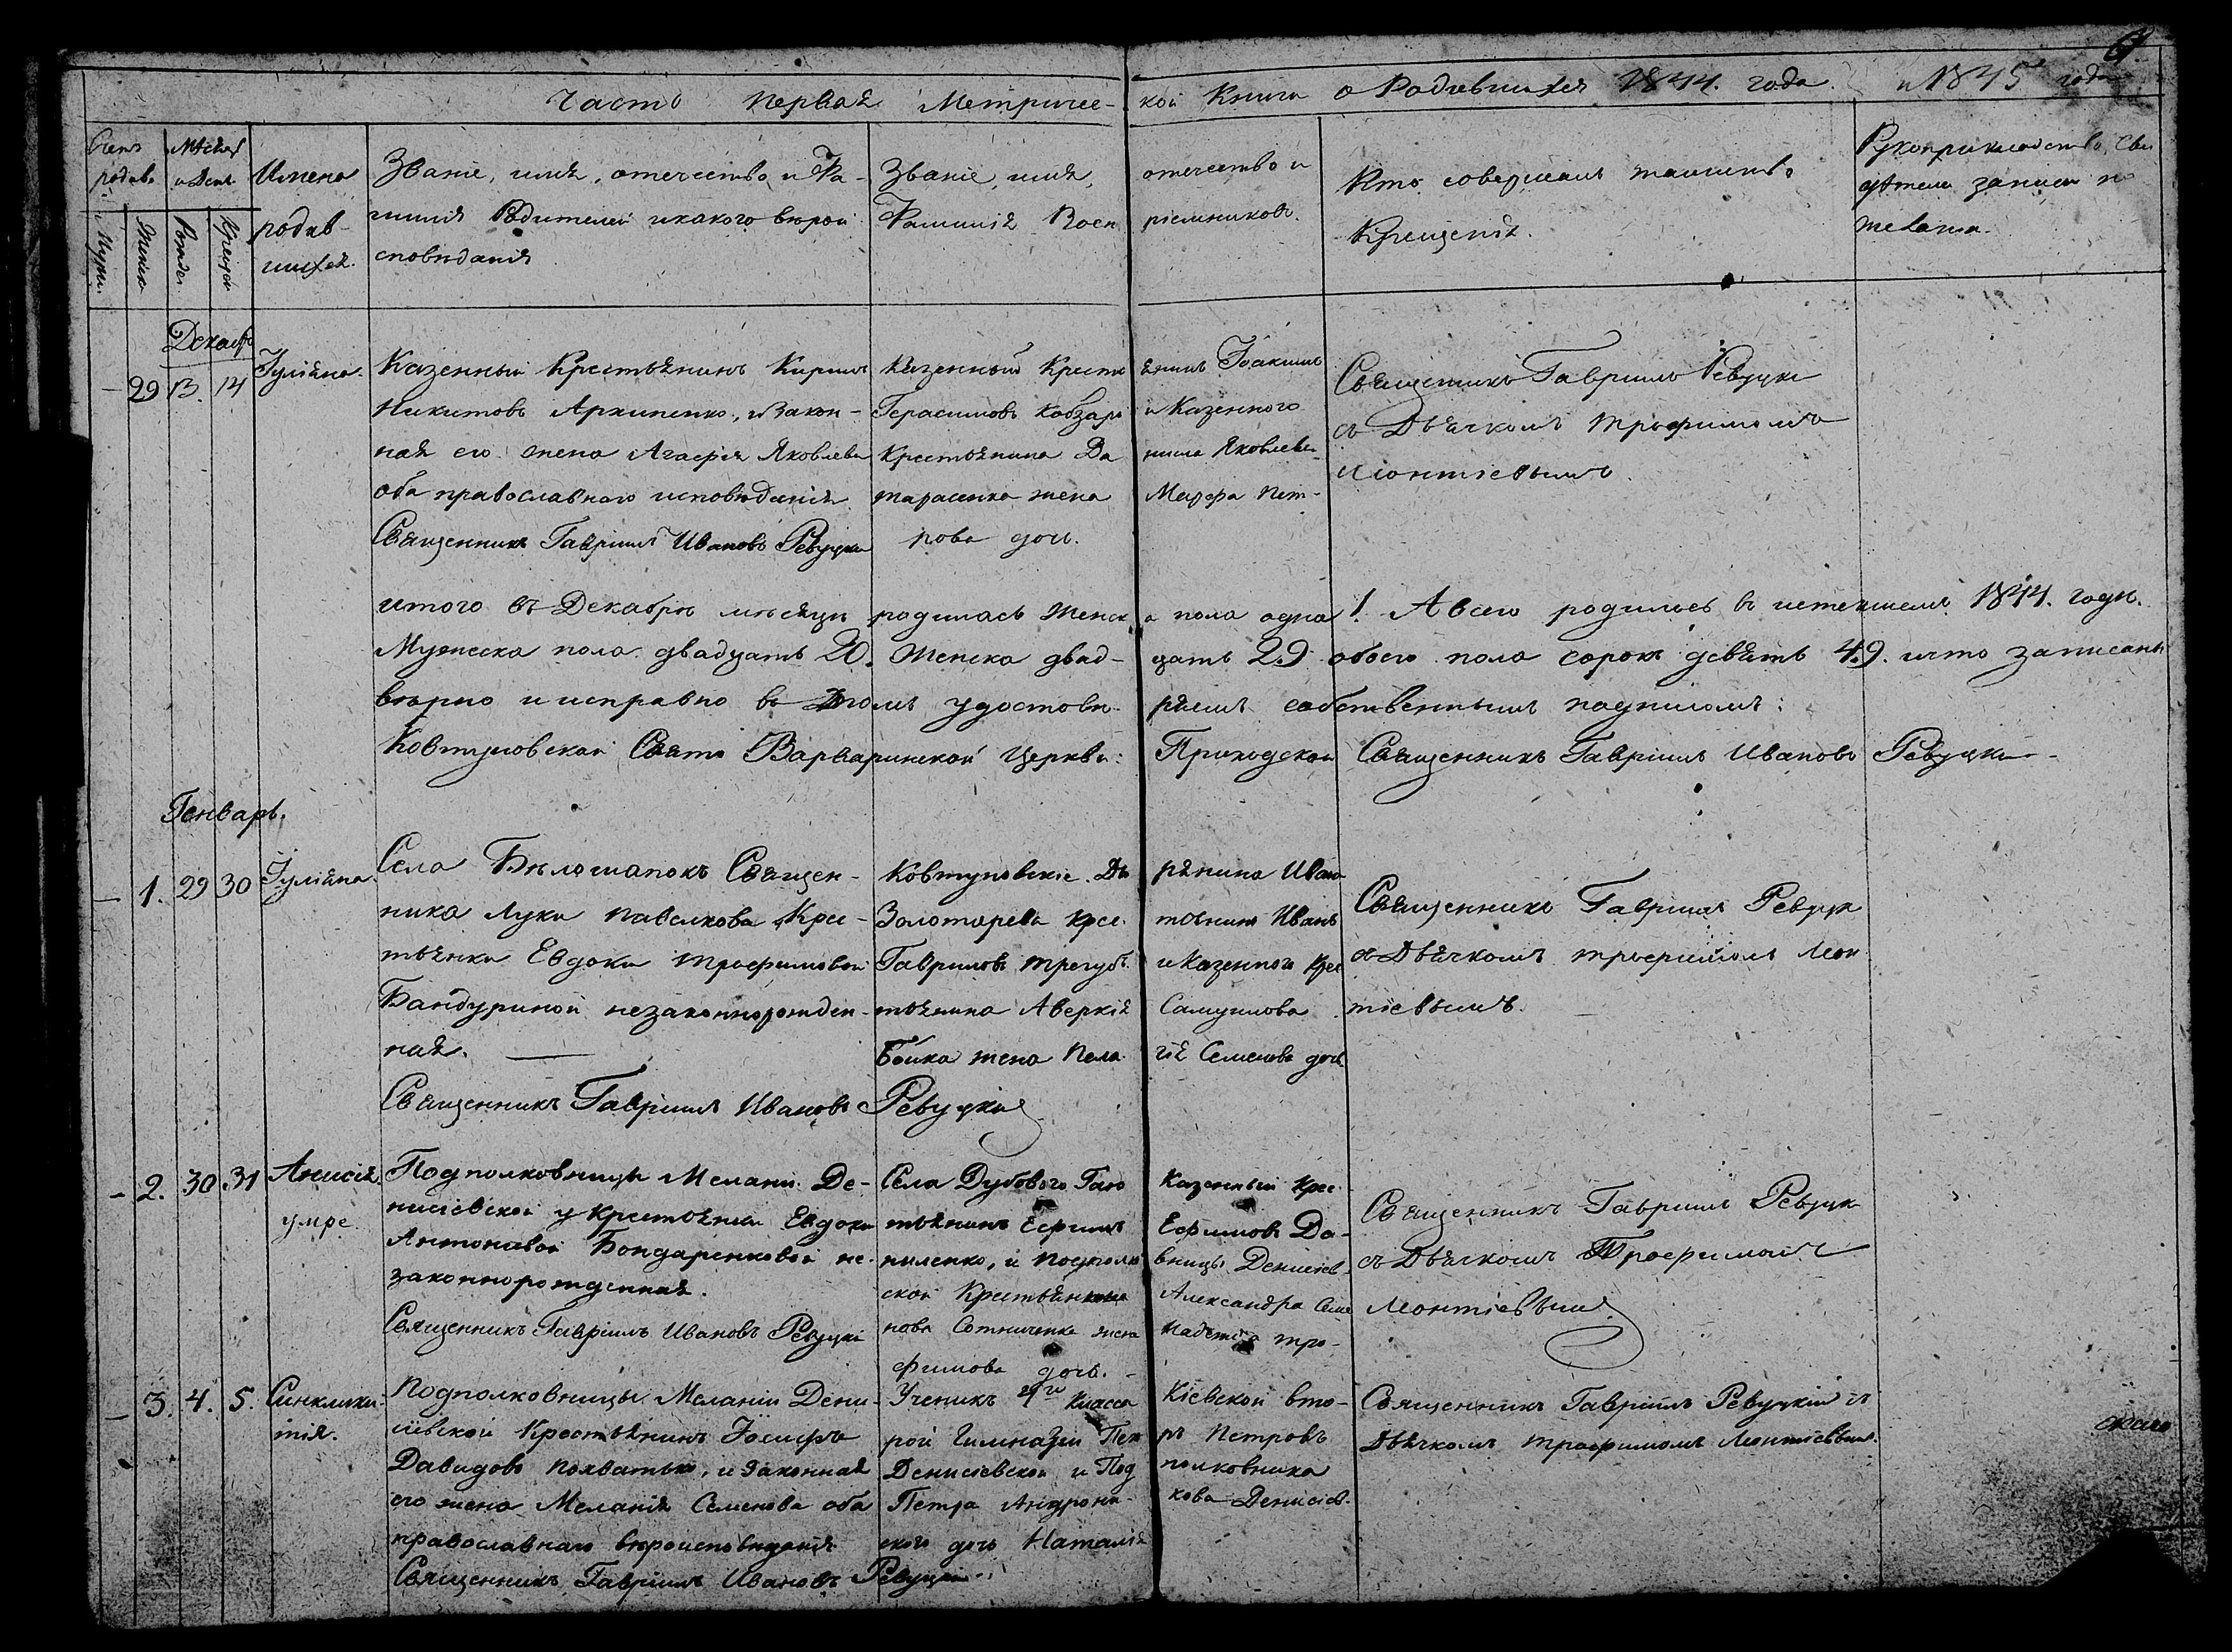 6
Часть первая Метричес- кой Книги о Родившихся 1844. года и 1845 года
Счетъ родивш.
Мѣсяцъ и День
Имена родив-
шихся.
Муж.
Женска
Рожден.
Крещен.
Званіе, имя, отечество и Фа-
милія Родителей и какого вѣрои-
сповѣданія
Званіе, имя, отечество и
Фамилія Восп ріемниковъ.
Кто совершалъ таинство
Крещенія.
Рукоприкладство сви
дѣтелей записи по
желанію.
Декабрь
29 13. 14 Іуліана.
Казенный Крестьянинъ Кирилъ
Никитовъ Архипенко, и закон-
ная его жена Агафія Яковлева
оба православнаго исповѣданія.
Священникъ Гавріилъ Ивановъ Ревуцкій
Казенный Кресть янинъ Іоакимъ
Герасимовъ Кобзарь и Казенного
Крестьянина Да нила Яковлева
тарасенка жена Марфа Пет-
рова дочь.
Священникъ Гавріилъ Ревуцкій
съ Дьячкомъ Трофимомъ
Леонтіевымъ.
итого въ Декабрѣ мѣсяцѣ родилась женск а пола одна 1. А всего родилось въ истекшемъ 1844. году.
Мужеска пола двадцать 20. Женска двад- цать 29 обоего пола сорокъ девять 49. и что записаны
вѣрно и исправно въ томъ удостовѣ- ряемъ собственнымъ подписомъ:
Ковтуновской Свято Варваринской Церкви: Приходской Священникъ Гавріилъ Ивановъ Ревуцкій
Генварь.
1. 29 30 Іуліана.
Села Бѣлошапокъ Священ-
ника Луки Павелкова Крес-
тьянки Евдокіи Трофимовой
Бандуриной незаконнорожден-
ная.
Священникъ Гавріилъ Ивановъ Ревуцкій
Ковтуновскіе. Дво рянина Ивана
Золотарева крес. тьянинъ Иванъ
Гавриловъ Трегубъ и Казенного Крес
тьянина Аверкія Самуилова
Бойка жена Пела гія Семенова дочь
Священникъ Гавріилъ Ревуцк
съ Дьячкомъ Трофимомъ Леон
тіевымъ.
2. 30. 31 Анисія
умре.
Подполковницы Меланіи Де-
нисіевской у крестьянки Евдокіи
Антоновой Бондаренковой не-
законнорожденная.
Священникъ Гавріилъ Ивановъ Ревуцкій
Села Дубового Гаю Казенный Крес-
тьянинъ Ефимъ Ефимовъ Да-
ниленко, и подполко вницы Денисіев-
ской Крестьянина Александра Семе
нова Сотниченка жена Надежда Тро-
фимова дочь.
Священникъ Гавріилъ Ревуцк
съ Дьячкомъ Трофимомъ
Леонтіевымъ
3. 4. 5. Синклики-
тія.
Подполковницы Меланіи Дени-
сіевской Крестьянинъ Іосифъ
Давидовъ Похватько, и законная
его жена Меланія Семенова оба
православнаго вѣроисповѣданія
Священникъ Гавріилъ Ивановъ Ревуцкій.
Ученикъ класса Кіевской вто-
рой Гимназіи Пет ръ Петровъ
Денисіевской и Под полковника
Петра Андрони- кова Денисіев-
ского дочь Наталія
Священникъ Гавріилъ Ревуцкій съ
Дьячкомъ Трофимомъ Леонтіевым.